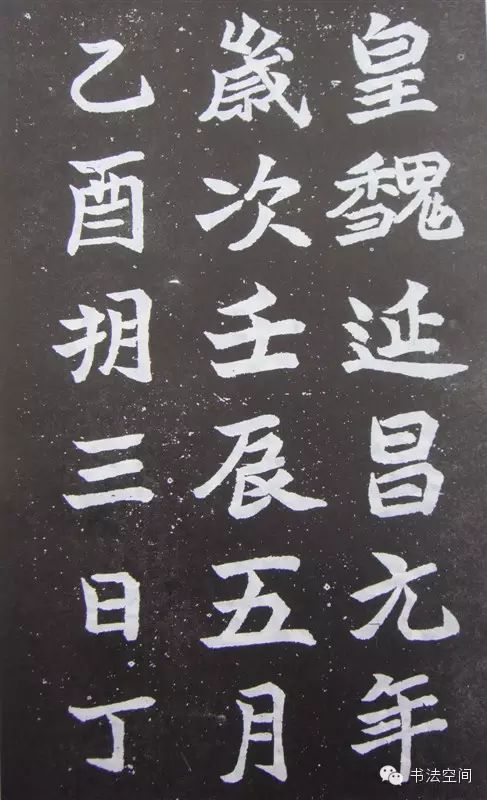 皇魏延昌元年
歲次壬辰五月
乙酉朔三日丁
书法空间